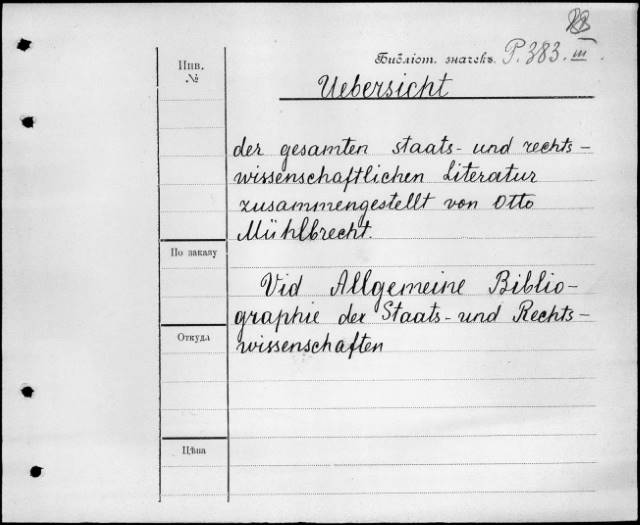 88
Библіот. значекъ. P. 383. III
Инв.
№
Uebersicht
der gesamten staats- und rechts-
wissenschaftlichen Literatur
zusammengestellt von Otto
Mühlbrecht.
По заказу
Vid Allgemeine Biblio-
graphie der Staats- und Rechts-
Откуда
wissenschaften
Цѣна